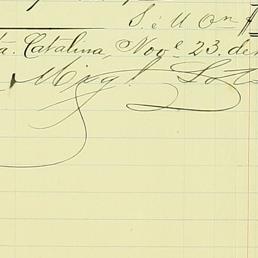 S. é U On
a. Catalina, Nov.e 23. de
Migl. Soto